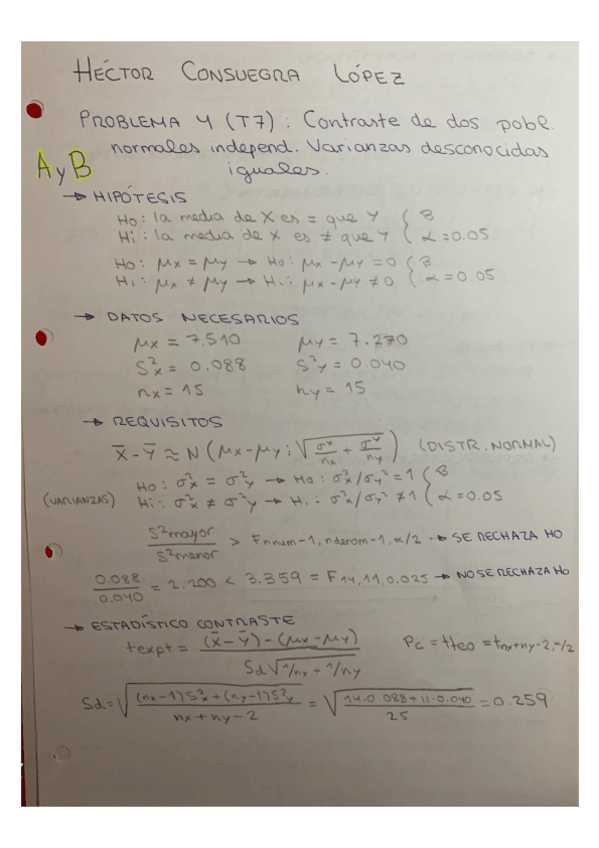 HÉCTOR CONSUEGRA LÓPEZ
PROBLEMA 4 (T7): Contraste de dos pobl.
normales independ. Varianzas desconocidas
iguales.
A y B
→ HIPÓTESIS
Ho: la media de X es = que Y { B
Hi: la media de X es ≠ que Y { α=0.05
Ho: μx = μy → Ho: μx - μy = 0 { B
H1: μx ≠ μy → Hi: μx - μy ≠ 0 { α=0.05
→ DATOS NECESARIOS
μx = 7.510 μy = 7.270
S²x = 0.088 S²y = 0.040
nx = 15 ny = 15
→ REQUISITOS
X̄ - Ȳ ≈ N (μx - μy; √(σx/nx + σy/ny)) (DISTR. NORMAL)
Ho: σ²x = σ²y → Ho: σ²x/σy² = 1 { B
(VARIANZAS) Hi: σ²x ≠ σ²y → Hi: σ²x/σy² ≠ 1 { α=0.05
S²mayor / S²menor > Fnnum-1, nderom-1, α/2 → SE RECHAZA HO
0.088 / 0.040 = 2.200 < 3.359 = F14,11,0.025 → NO SE RECHAZA Ho
→ ESTADÍSTICO CONTRASTE
texpt = (X̄-Ȳ) - (μx-μy) / Sd√1/nx + 1/ny Pc = tteo = tnx+ny-2, α/2
Sd = √((nx-1)S²x + (ny-1)S²y / nx + ny - 2) = √(14·0.088 + 11·0.040 / 25) = 0.259